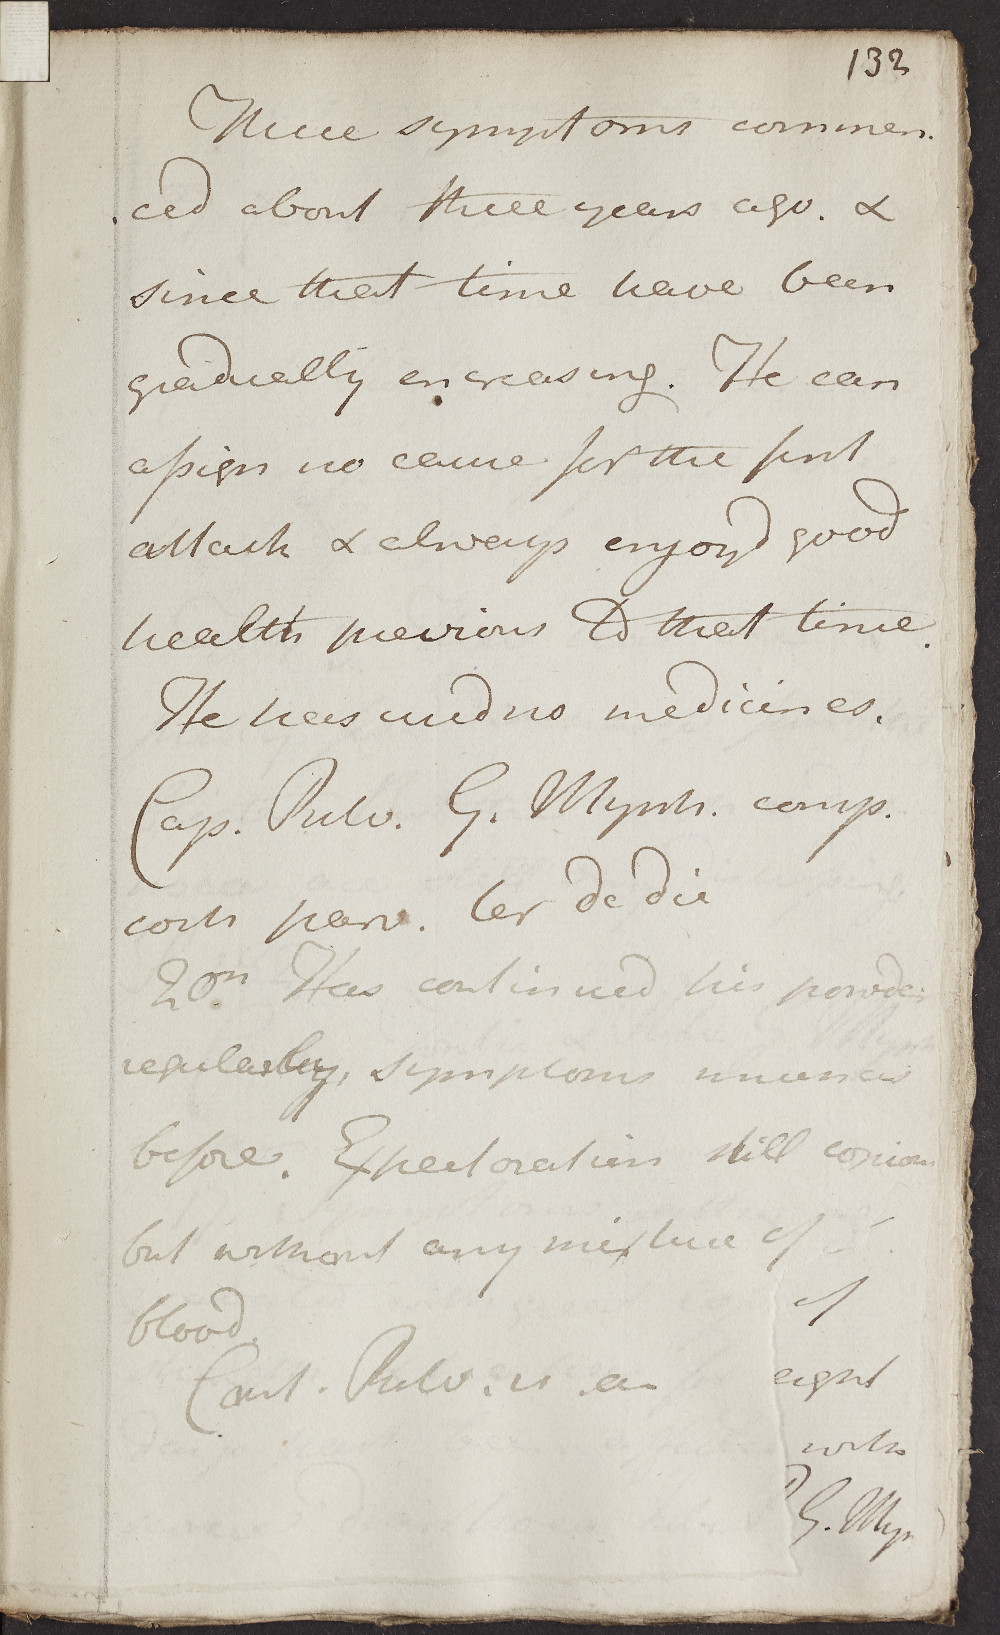 132
These symptoms commen.
ced about three years ago. &
since that time have been
gradually encreasing. He can
assign no cause for the first
attack & always enjoyd good
health previous to that time.
He has used no medicines.
Cap. Pulv. G. Myrrh. comp.
coch parv. ter de die
20th Has continued his powders
regularly, symptoms much as
before. Expectoration still copious
but without any mixture of
blood.
of
Cont. Pulv. ut an
eight
with
G. Myr